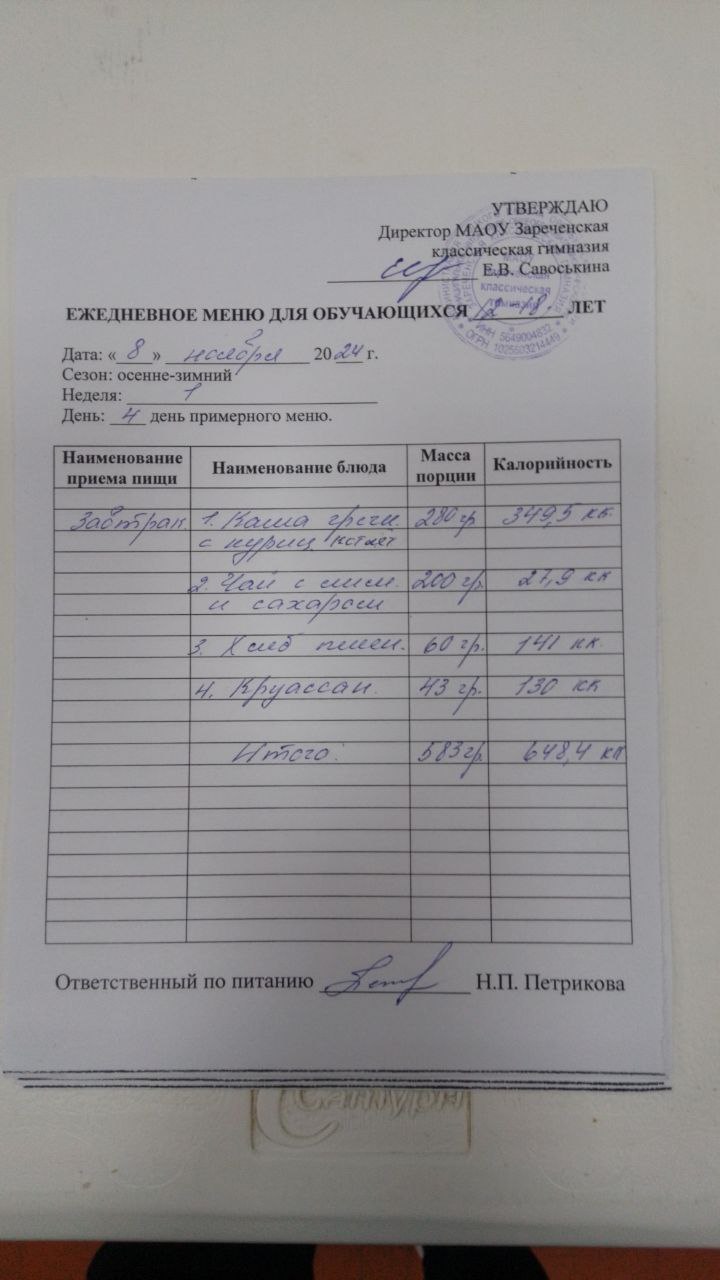 УТВЕРЖДАЮ
Директор МАОУ Зареченская
классическая гимназия
Е.В. Савоськина
МАОУ
Зареченская
классическая
гимназия
ИНН 5649004832
ОГРН 1025603214449
ЕЖЕДНЕВНОЕ МЕНЮ ДЛЯ ОБУЧАЮЩИХСЯ 12-18 ЛЕТ
Дата: « 8 » ноября 2024 г.
Сезон: осенне-зимний
Неделя: 1
День: 4 день примерного меню.
Наименование приема пищи Наименование блюда Масса порции Калорийность
Завтрак 1. Каша гречн. 280 гр 349,5 кк.
с куриц котлет
2. Чай с лим. 200 гр. 27,9 кк
и сахаром
3. Хлеб пшен. 60 гр. 141 кк.
4. Круассан. 43 гр. 130 кк
Итого: 583 гр. 648,4 кк
Ответственный по питанию Н.П. Петрикова